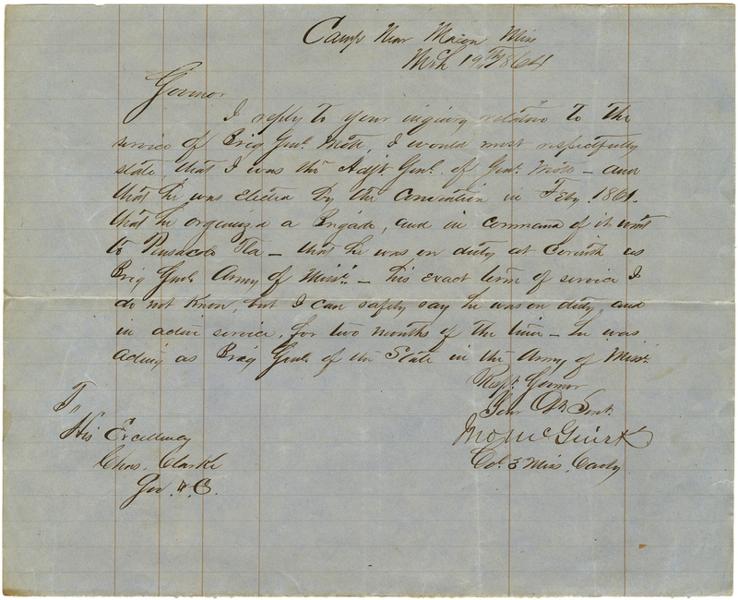 Camp Near Macon Miss
Mch 19th 1864
Governor
I reply to your inquiry relative to the
service of Brig Genl. Mott, I would most respectfully
state, that I was the Adjt Genl. of Genl. Mott – and
that he was elected by the Convention in Feby. 1861.
that he organized a Brigade, and in command of it went
to Pensacola Fla – that he was on duty at Corinth as
Brig Genl Army of Missi. – his exact term of service I
do not know, but I can safely say he was on duty, and
in active service, for two months of the time – he was
acting as Brig Genl. of the State in the Army of Missi.
Respt. Governor
Your Obt Servt.
McGuirk
Col. 3 Miss. Cavly
To
His Excellency
Chas. Clarke
Gov. &C.